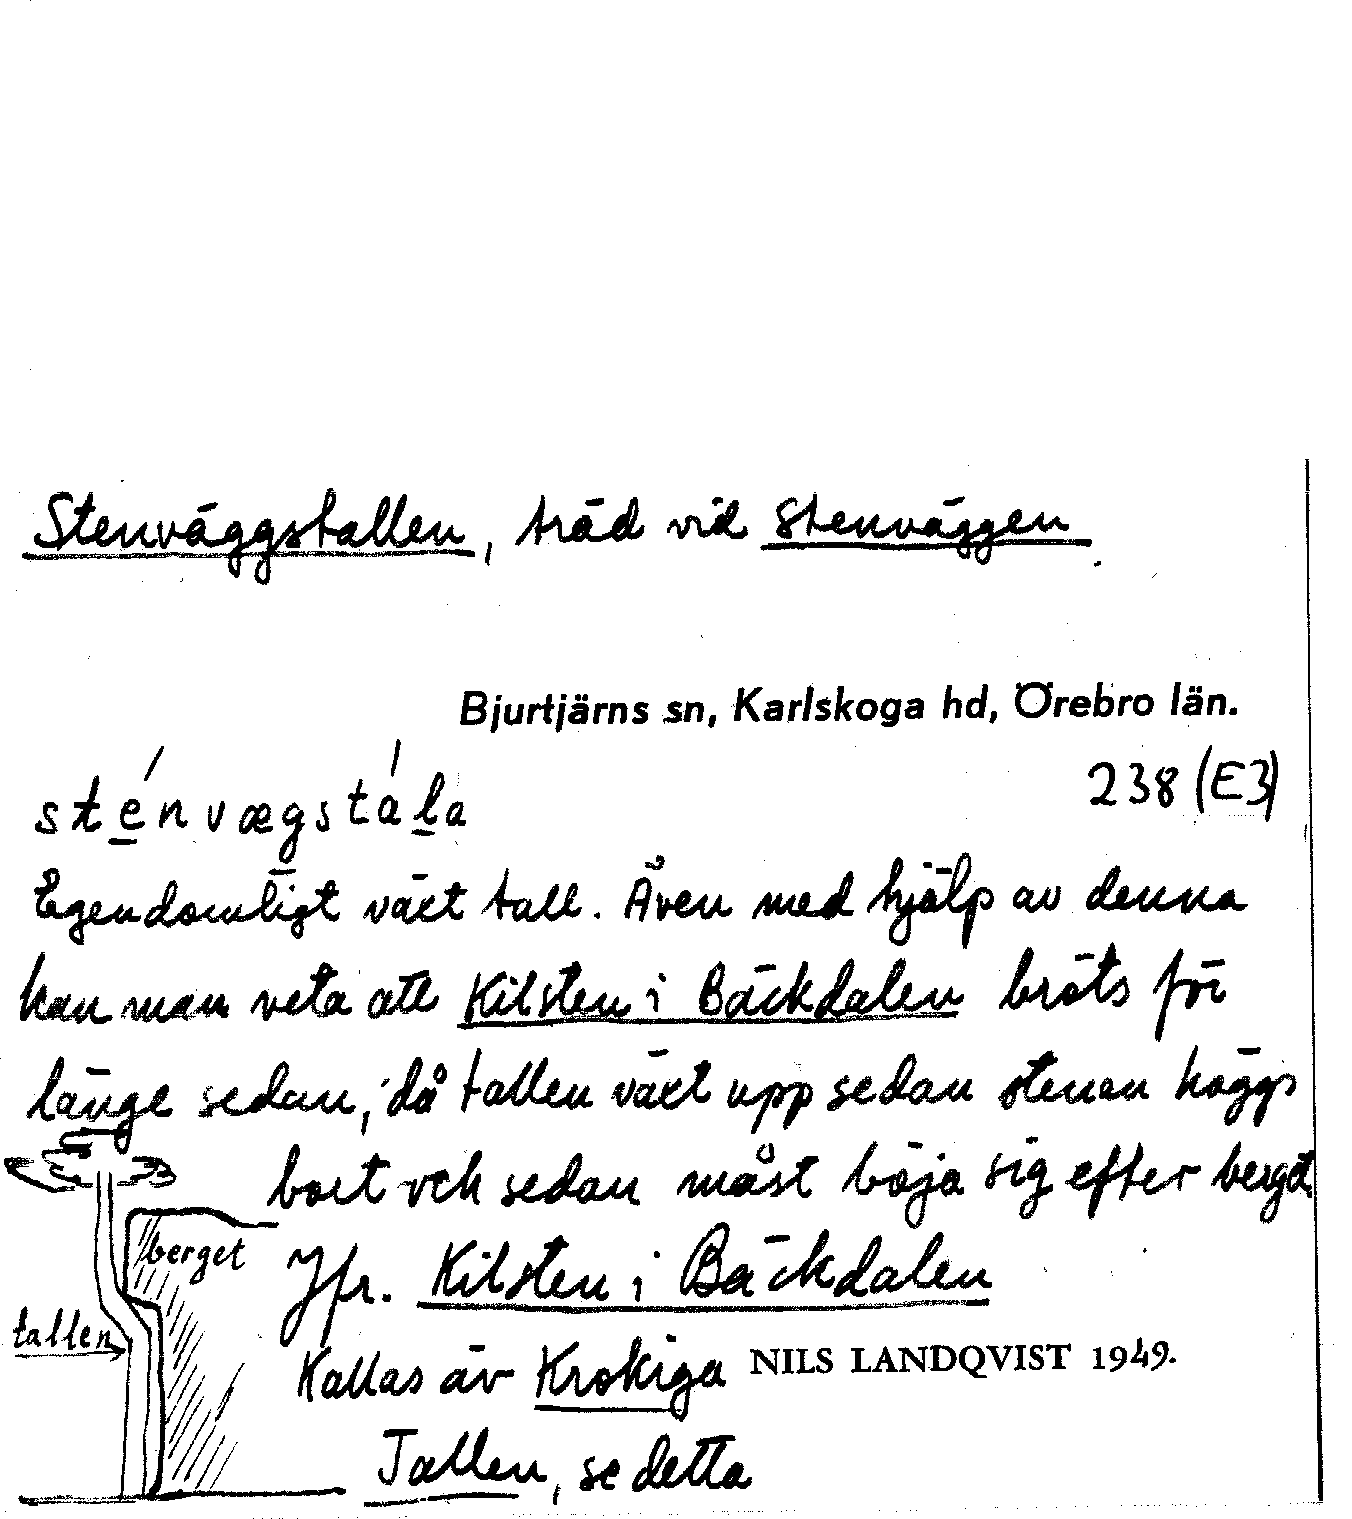 Stenväggstallen, träd vid Stenväggen.
Bjurtjärns sn, Karlskoga hd, Örebro län.
sténvægstála
238 (E3)
Egendomligt växt tall. Även med hjälp av denna
kan man veta att Kilsten i Bäckdalen bröts för
länge sedan, då tallen växt upp sedan stenen höggs
bort och sedan måst böja sig efter berget
berget
Jfr. Kilsten i Bäckdalen
tallen
Kallas äv Krokiga
NILS LANDQVIST 1949.
Tallen, se detta